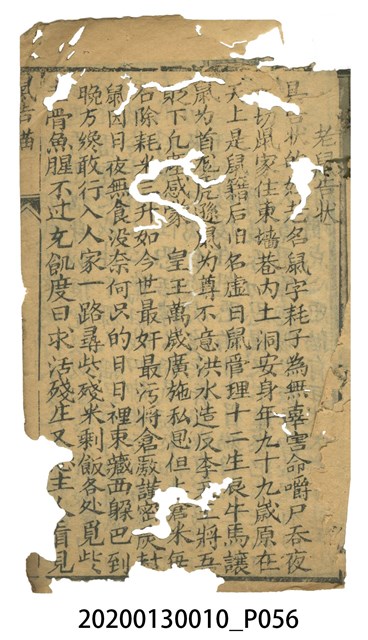 老告状
具告状的名鼠字耗子為無辜害命嚼尸吞夜
切鼠家住東墻巷内土洞安身年九十九歲原在
天上是鼠籍后旧名虚日鼠管理十二生辰牛馬讓
鼠为首龙虎猻鼠为尊不意洪水造反李王將五
貶下凡塵感蒙皇王萬歲廣施私恩但倉米每
石除耗米三升如今世最奸最污將倉厫謹密灰封
鼠因日夜無食没奈何只的日日裡東藏西躱巴到
晚方纔敢行入人家一路尋些殘米剩飯各处覓些
骨魚腥不过充飢度日求活殘生又主看見
鼠告猫
20200130010_P056